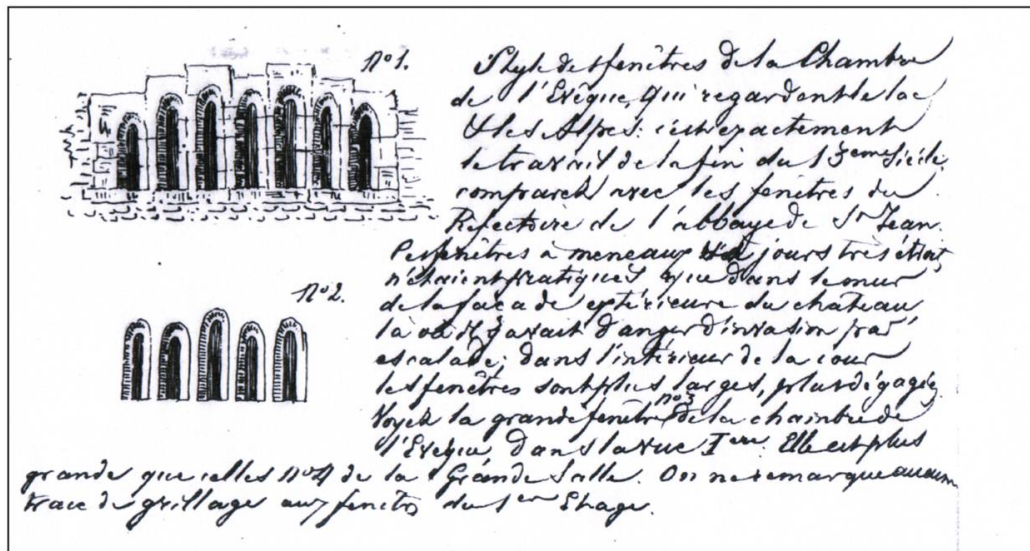 n° 1.
Style des fenêtres de la Chambre
de l'Evêque, qui regardent le lac
& les Alpes: c'est exactement
le travail de la fin du 13eme siècle.
comparez avec les fenêtres du
Réfectoire de l'abbaye de St Jean.
Ces fenêtres à meneaux & à jours très étroits
n'étaient pratiquées que dans le mur
n° 2.
de la façade extérieure du château
là où il y avait danger d'invasion par
escalade; dans l'intérieur de la cour
les fenêtres sont plus larges, plus dégagées
Voyez la grande fenêtre n° 3 de la chambre de
l'Evêque, dans la vue Iere. Elle est plus
grande que celles n° 4 de la Grande Salle. On ne remarque aucune
trace de grillage aux fenêtres du 1er Etage.